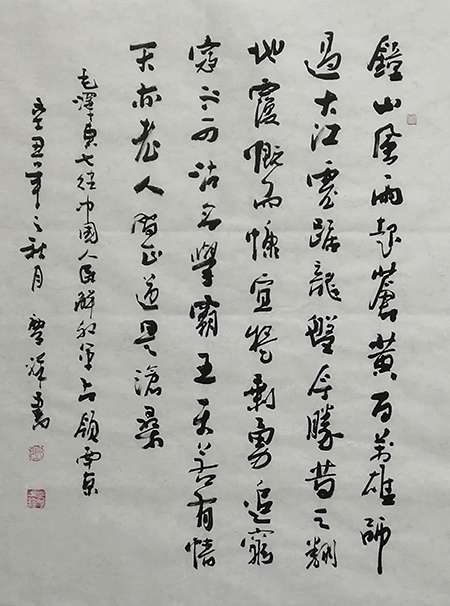 鐘山風雨起蒼黃百萬雄師
過大江虎踞龍盤今勝昔天翻
地覆慨而慷宜將剩勇追窮
寇不可沽名學霸王天若有情
天亦老人間正道是滄桑
毛澤東七律中國人民解放軍占領南京
辛丑年之秋月